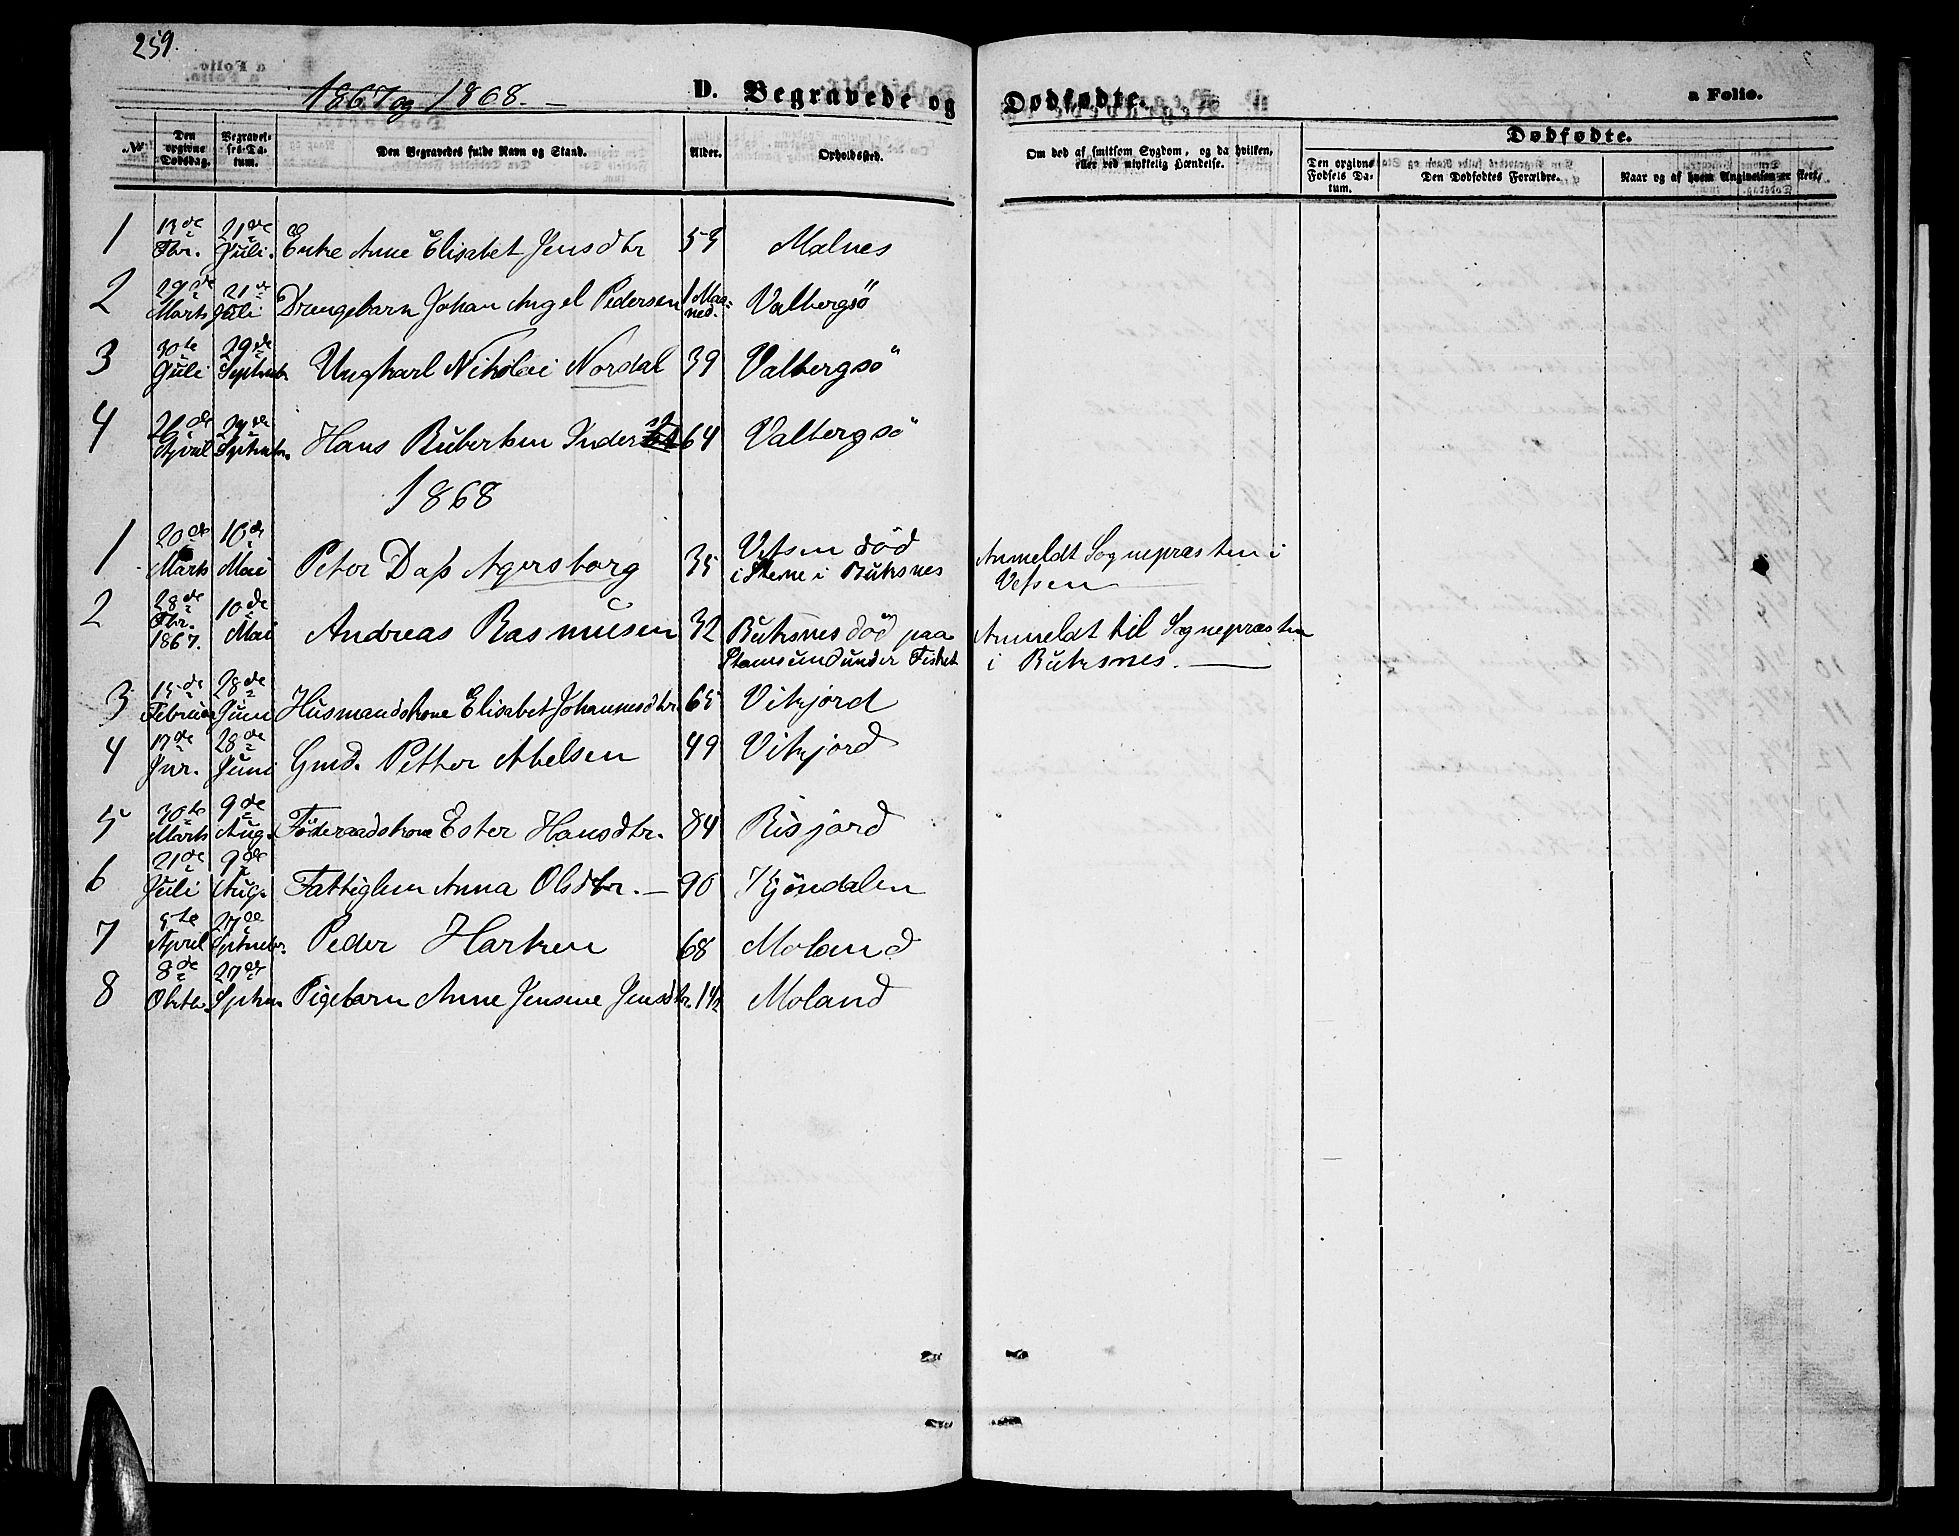 259.
1867 og 1868. —
D. Begravede og Dødfødte.
a Folio.
№
Den opgivne Dødsdag.
Begravelses-Datum.
Den Begravedes fulde Navn og Stand.
Alder.
Opholdssted.
Om død af smitsom Sygdom, og da hvilken, eller ved ulykkelig Hændelse.
Dødfødte.
Den opgivne Fødsels Datum.
Den Dødfødtes Forældre.
Naar og af hvem Angivelsen er skeet.
1 13de Fbr. 21de Juli. Enke Anne Elisabet Jensdtr 59 Malnes
2 29de Marts 21de Juli Drengebarn Johan Angel Pedersen 1 Maaned. Valbergsö
3 30te Juli 29de Septembr Ungkarl Nikolai Nordal 39 Valbergsö
4 29de Septembr. Hans 64 Valbergsö
1868
1 20de Marts 10de Mai Peter Dass Agersborg 35 Vefsen död i Steine i Buksnes Anmeldt Sognepræsten i Vefsen
2 28de Fbr. 1867. 10de Mai Andreas Rasmusen 32 Buksnes död paa Stamsund under Fisket Anmeldt til Sognepræsten i Buksnes. —
3 15de Februar 28de Juni Husmandskone Elisabet Johannesdtr. 65 Vikjord
4 17de Jnr. 28de Juni Gmd. Petter Abelsen 49 Vikjord
5 30te Marts 9de Aug. Föderaadskone Ester Hansdtr. 84 Risjord
6 21de Juli 9de Aug. Fattiglem Anna Olsdtr. — 90 Kjöndalen
7 5te April 27de Septnebr. Peder 68 Moland
8 8de Oktb. 27de Septem Pigebarn Anne Jensine Jensdtr. 1 1/2 Moland